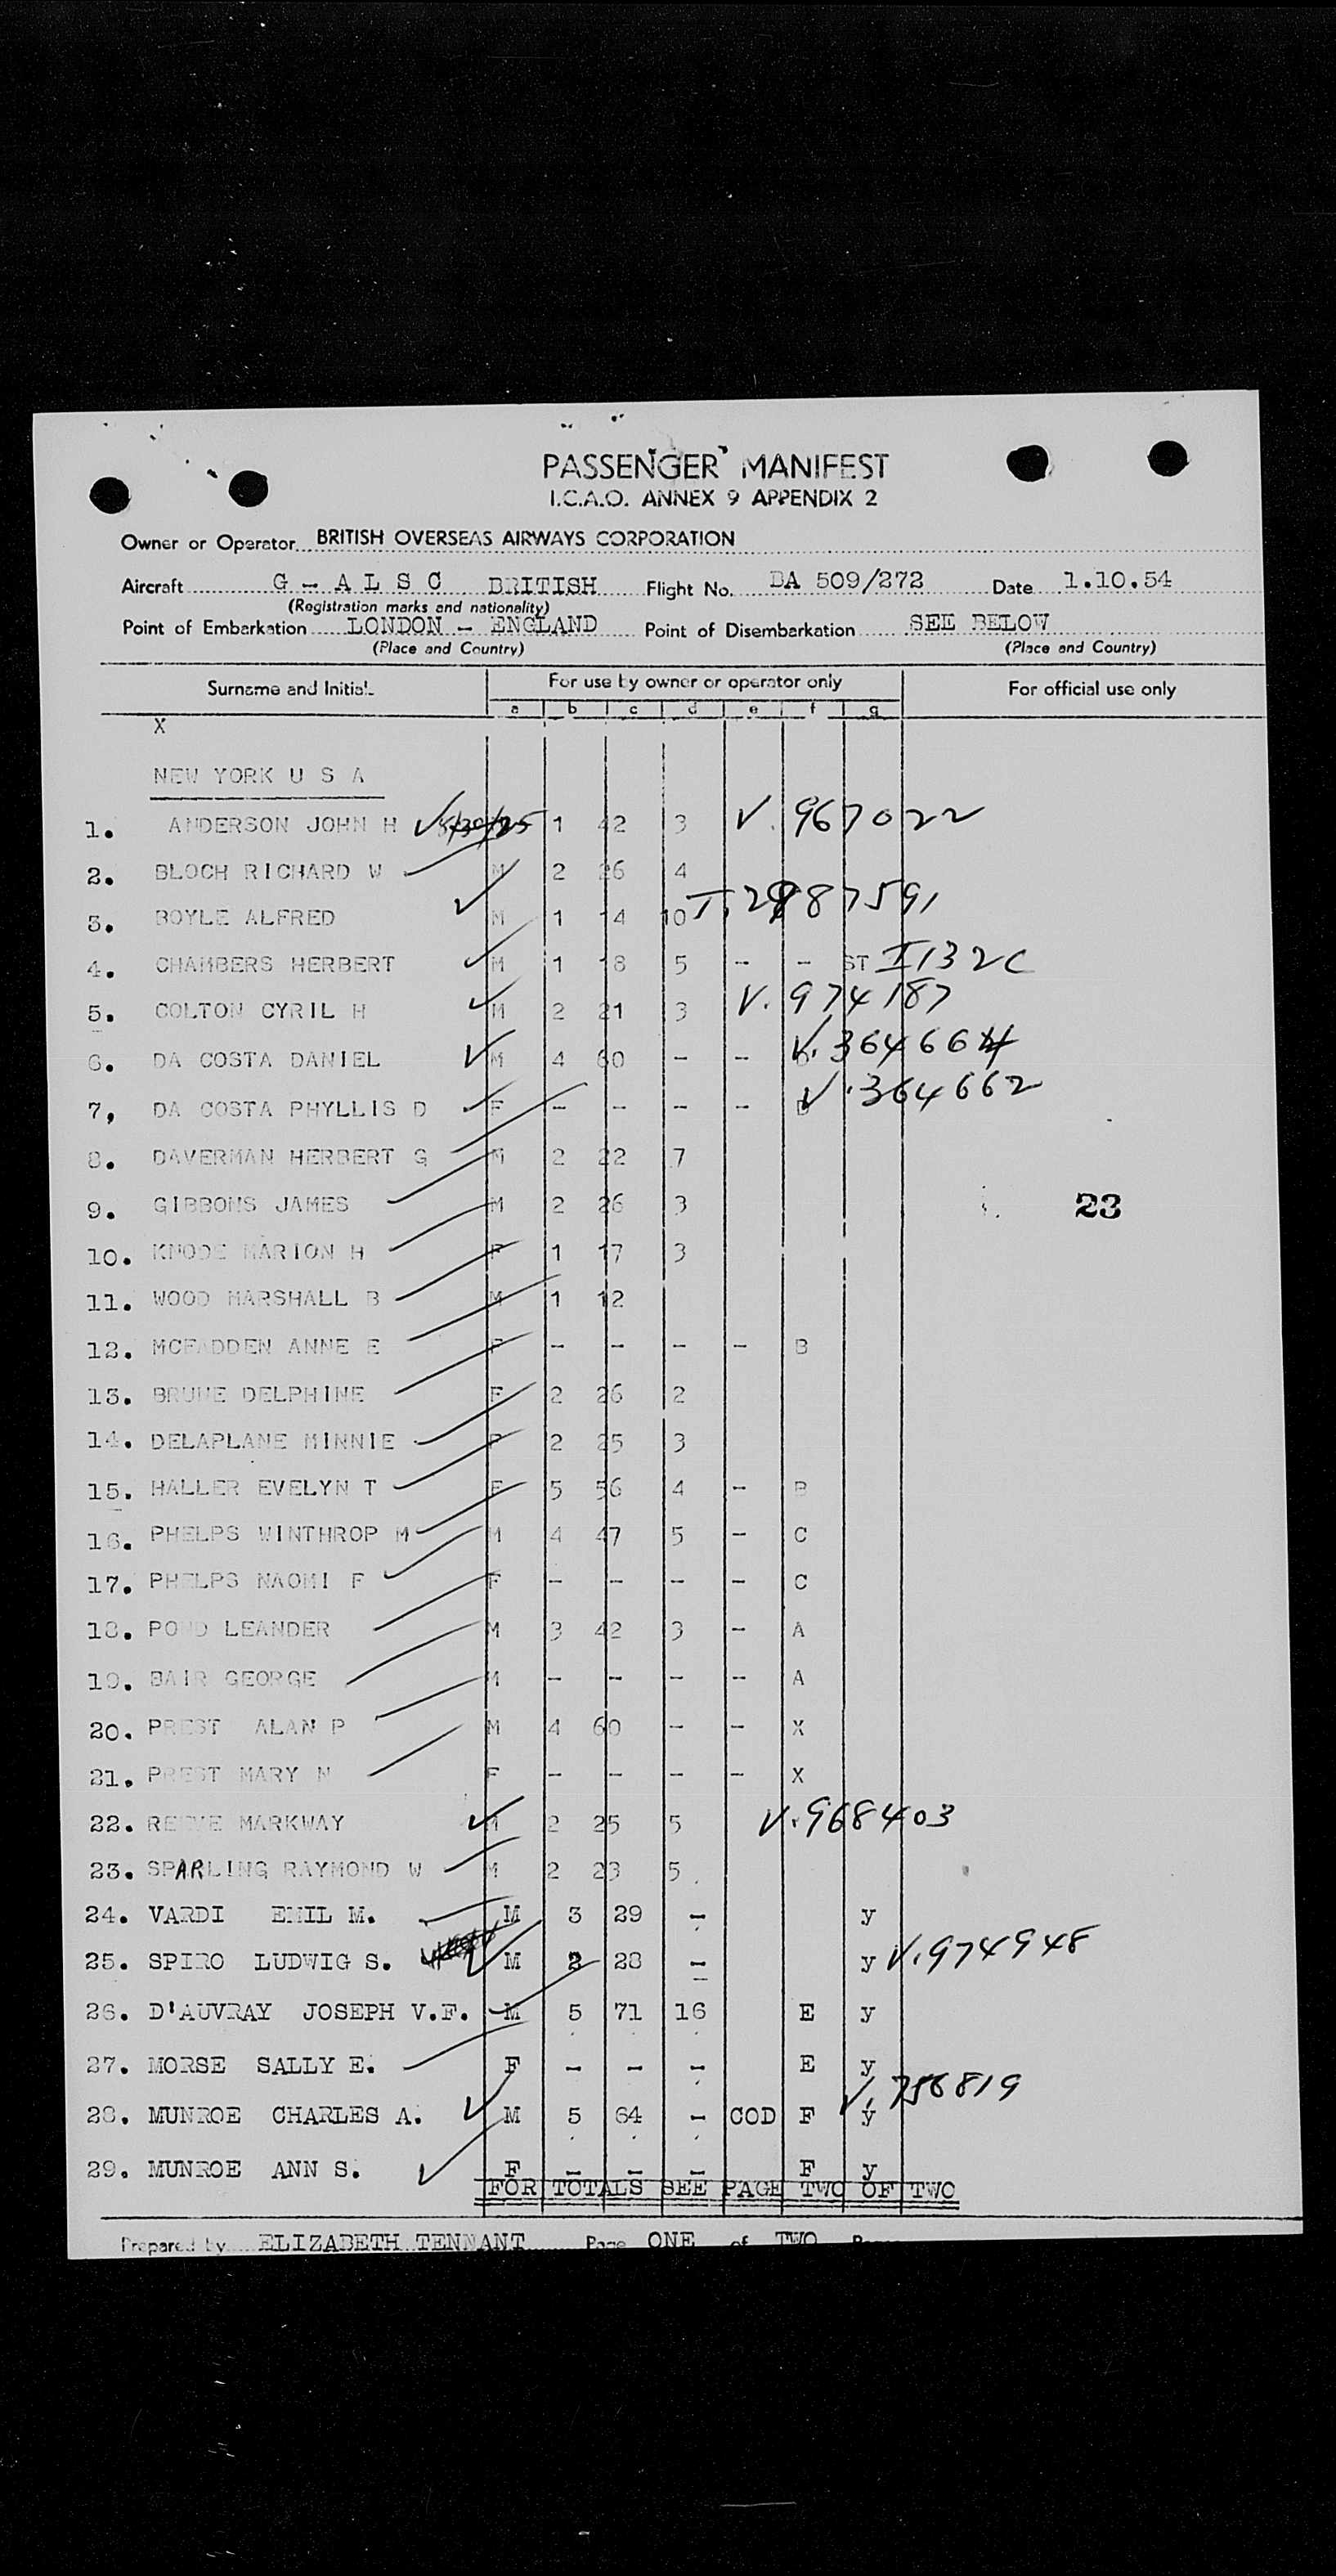 PASSENGER MANIFEST
I.C.A.O. ANNEX 9 APPENDIX 2
Owner or Operator BRITISH OVERSEAS AIRWAYS CORPORATION
Aircraft G - A L S C BRITISH Flight No. BA 509/272 Date 1.10.54
(Registration marks and nationality)
Point of Embarkation LONDON - ENGLAND Point of Disembarkation SEE BELOW
(Place and Country) (Place and Country)
Surname and Initial For use by owner or operator only For official use only
a b c d e f g
X
NEW YORK U S A
1. ANDERSON JOHN H 1 42 3 V. 967022
2. BLOCH RICHARD W M 2 26 4
3. BOYLE ALFRED M 1 14 10
4. CHAMBERS HERBERT M 1 18 5 - - ST I132C
5. COLTON CYRIL H M 2 21 3 V. 974187
6. DA COSTA DANIEL M 4 60 - - V. 364664
7, DA COSTA PHYLLIS D F - - - - D V. 364662
8. DAVERMAN HERBERT G M 2 22 7
9. GIBBONS JAMES M 2 26 3 23
10. KNODE MARION H F 1 17 3
11. WOOD MARSHALL B M 1 12
12. MCFADDEN ANNE E F - - - - B
13. BRUNE DELPHINE F 2 26 2
14. DELAPLANE MINNIE F 2 25 3
15. HALLER EVELYN T F 5 56 4 - B
16. PHELPS WINTHROP M M 4 47 5 - C
17. PHELPS NAOMI F F - - - - C
18. POND LEANDER M 3 42 3 - A
19. BAIR GEORGE M - - - - A
20. PREST ALAN P M 4 60 - - X
21. PREST MARY N F - - - - X
22. MARKWAY M 2 25 5 V. 968403
23. SPARLING RAYMOND W M 2 23 5
24. VARDI EMIL M. M 3 29 - y
25. SPIRO LUDWIG S. M 28 - y V. 974948
26. D'AUVRAY JOSEPH V.F. M 5 71 16 E y
27. MORSE SALLY E. F - - - E y
28. MUNROE CHARLES A. M 5 64 - COD F y V. 756819
29. MUNROE ANN S. F - - - F y
FOR TOTALS SEE PAGE TWO OF TWO
Prepared by ELIZABETH TENNANT Page ONE of TWO